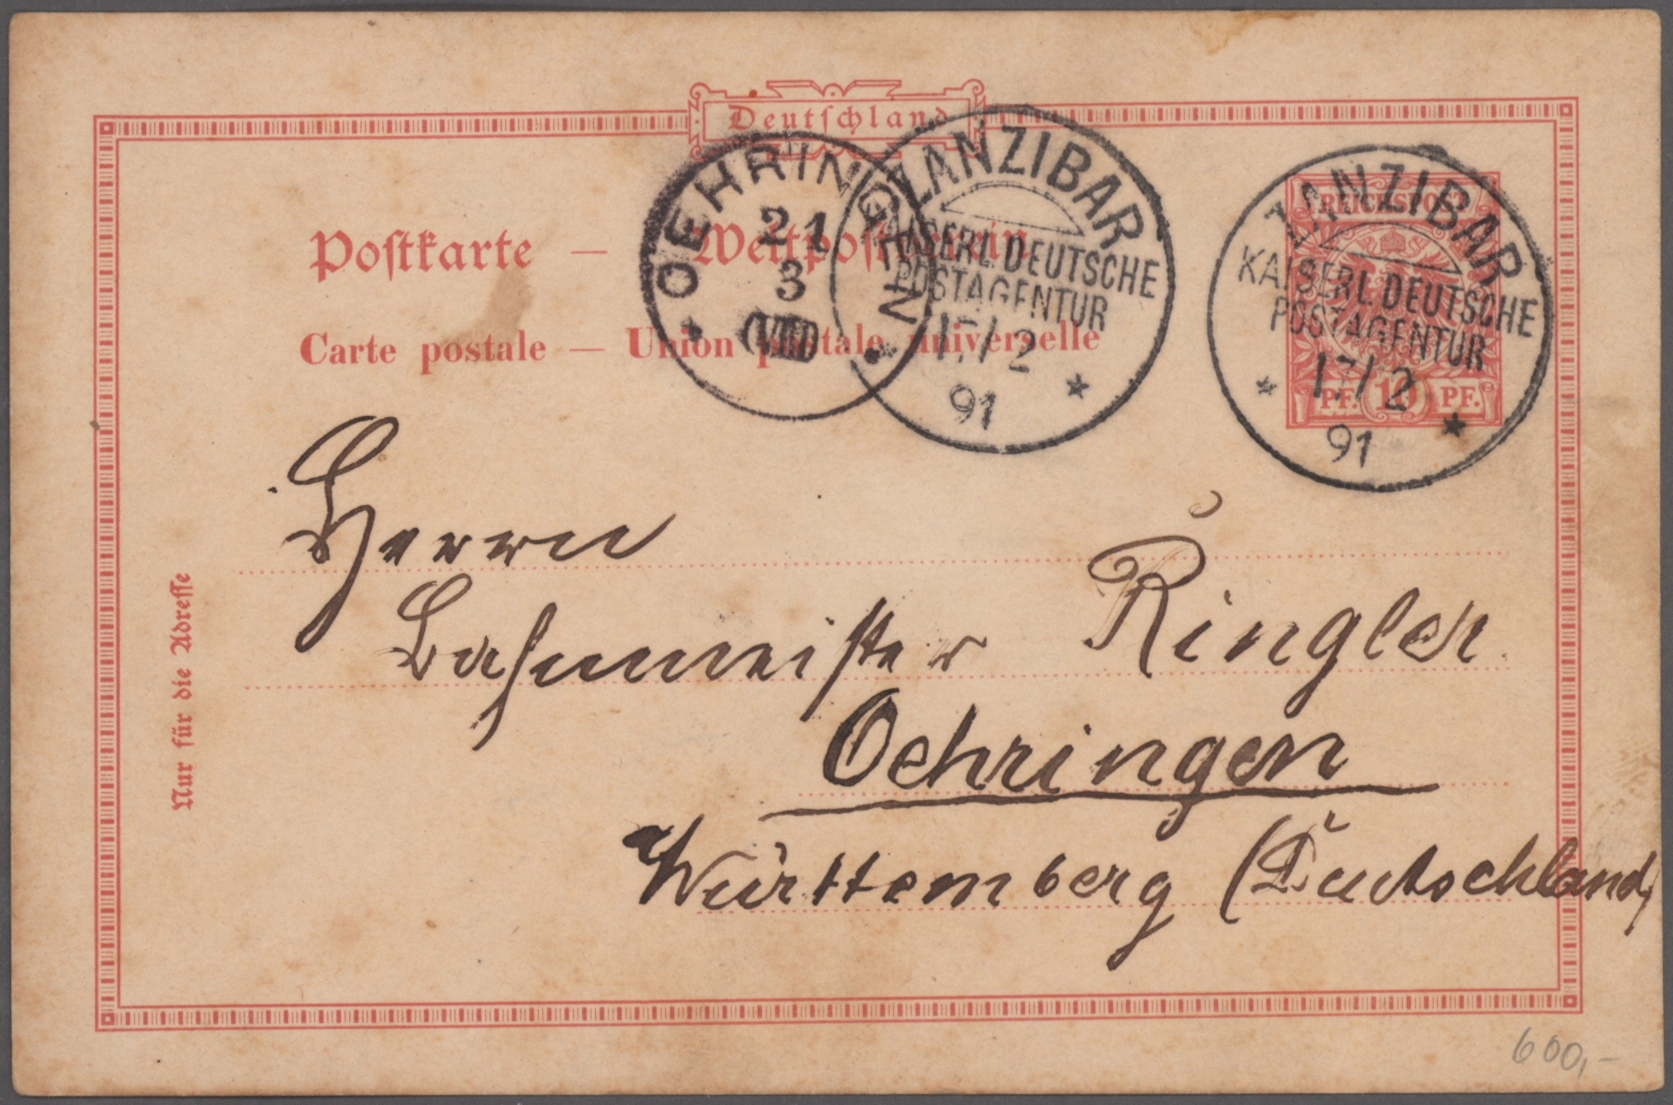 Deutschland
Postkarte — Weltpostverein
Carte postale — Union postale universelle
OEHRINGEN
21
3
ZANZIBAR
KAISERL. DEUTSCHE
POSTAGENTUR
17/2
91
ZANZIBAR
KAISERL. DEUTSCHE
POSTAGENTUR
17/2
91
REICHSPOST
PF. 10 PF.
Herrn
Bahnmeister Ringler
Oehringen
Württemberg (Deutschland)
Nur für die Adresse
600,-